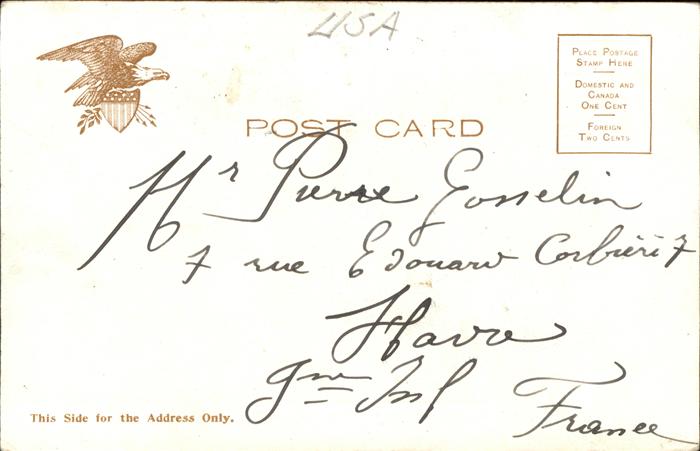 USA
PLACE POSTAGE
STAMP HERE
DOMESTIC AND
CANADA
ONE CENT
FOREIGN
TWO CENTS
POST CARD
Mr Pierre Gosselin
7 rue Edouard Corbière 7
Havre
Sne Inf
France
This Side for the Address Only.